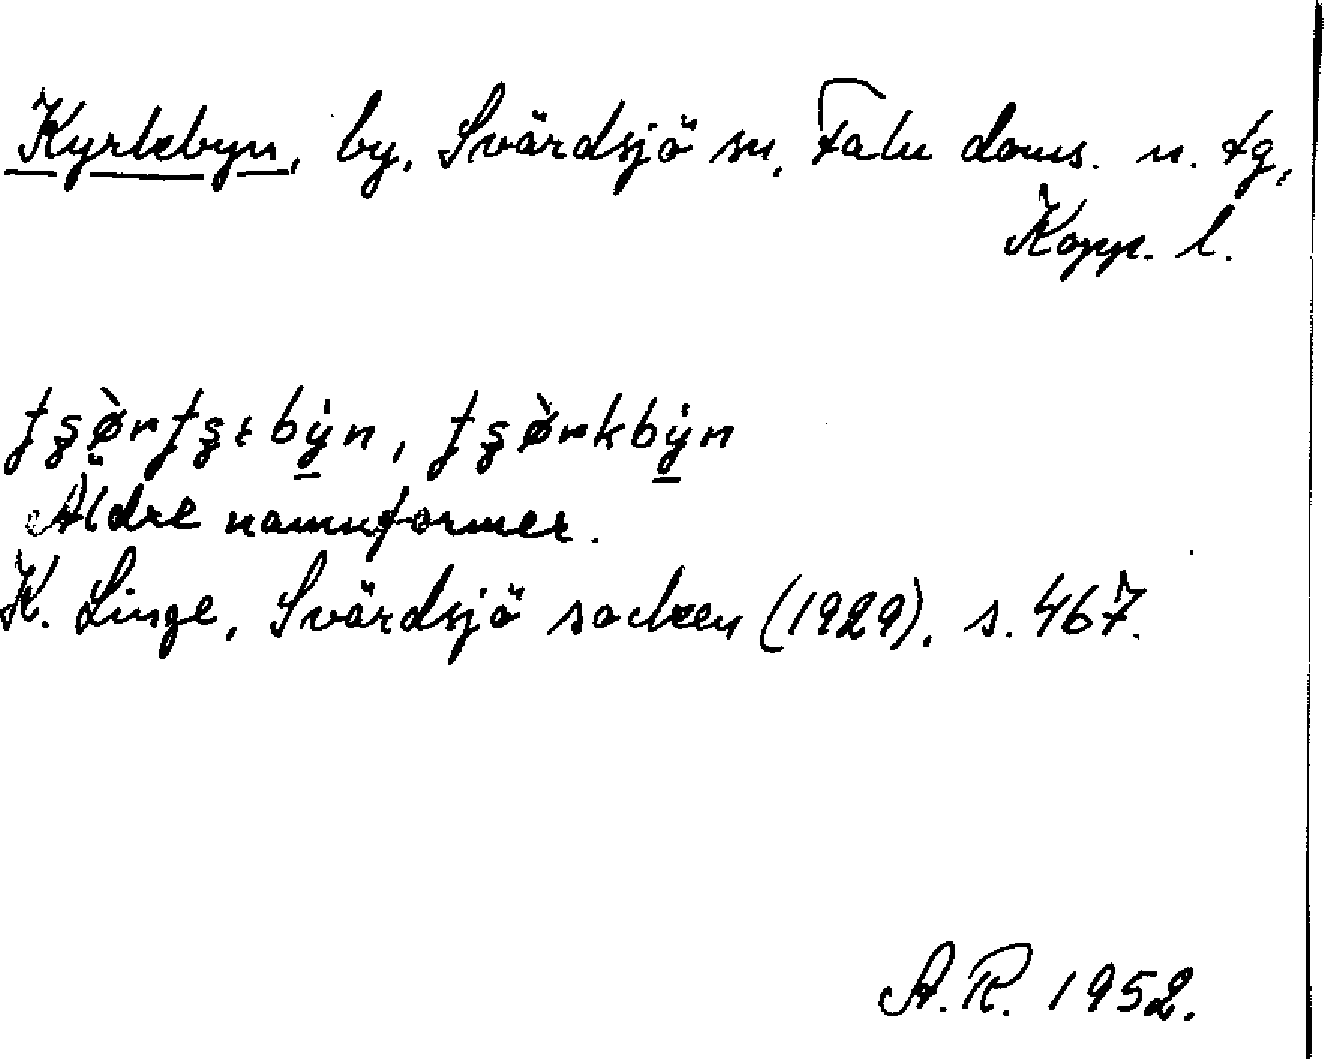 Kyrkebyn, by, Svärdsjö sn, Falu doms. n. tg,
Kopp. l.
Äldre namnformer.
K. Linge, Svärdsjö socken (1929), s. 467.
A.R. 1952.